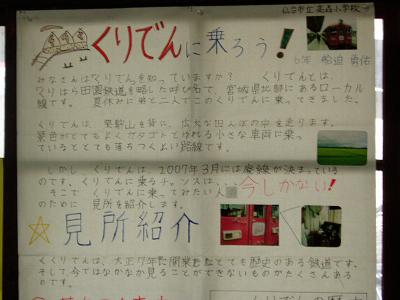 仙台市立高森小学校
くりでんに乗ろう!
6年
みなさんは「くりでん」を知っていますか? くりでんとは、
くりはら田園鉄道を略した呼び名で、宮城県北部にあるローカル
線です。 夏休みに弟と二人でこのくりでんに乗ってきました。
くりでんは、栗駒山を背に、広大な田んぼの中を走ります。
景色がとてもよくガタゴトとゆれる小さな車両に乗っ
ているととても落ちつくよい路線です。
しかし、くりでんは、2007年3月には廃線が決まっている
のです。くりでんに乗るチャンスは、今しかない!
そこで、くりでんに乗ってみたい人
のために 見所を紹介します。
☆見所紹介
くりでんは、大正7年に開業したとても歴史のある鉄道です。
そして、今ではなかなか見ることができないものがたくさんある
のです。